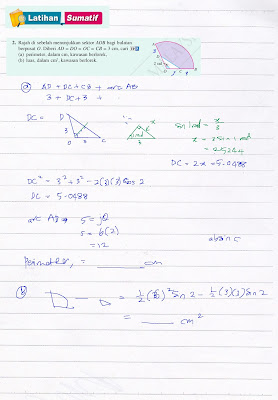 Latihan Sumatif
2. Rajah di sebelah menunjukkan sektor AOB bagi bulatan
berpusat O. Diberi AD = DO = OC = CB = 3 cm, cari
(a) perimeter, dalam cm, kawasan berlorek,
(b) luas, dalam cm², kawasan berlorek.
A
D
2 rad
O C B
(a) AD + DC + CB + arc AB
3 + DC + 3 +
DC = D
3
O 3 C
x
3
1 rad
sin 1 rad = x/3
x = 3 sin 1 rad
= 2.5244
DC = 2x = 5.0488
DC² = 3² + 3² - 2(3)(3) cos 2
DC = 5.0488
arc AB → s = jθ
s = 6(2)
= 12
Perimeter, = ______ cm
(b) = ½(6)² 2 - ½(3)(3) sin 2
= ______ cm²